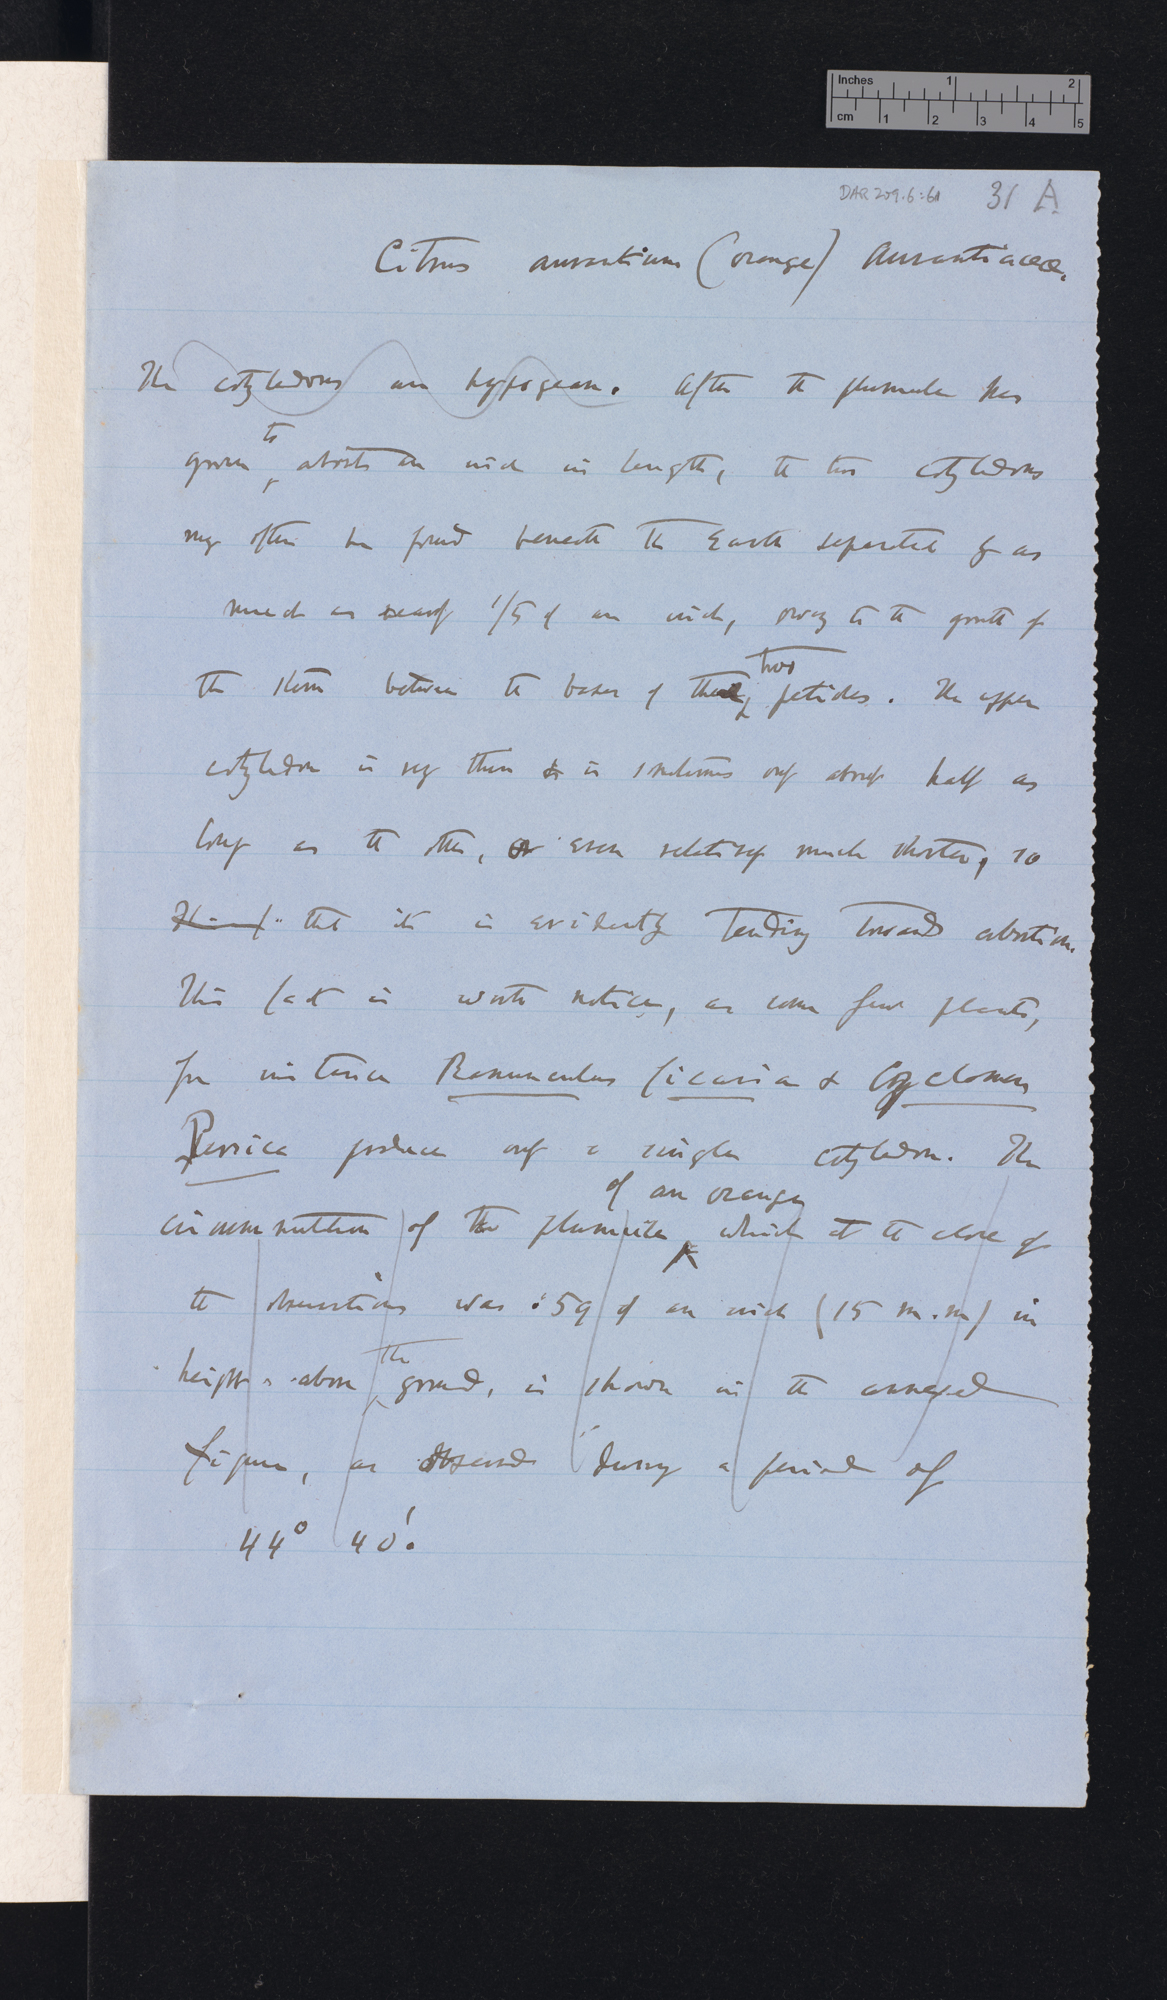 Inches 1 2
cm 1 2 3 4 5
DAR 209.6:61 31 A
Citrus aurantium (orange) Aurantiaceæ.
The cotyledons are hypogean. After the plumule has
to
grown about an inch in length, the two cotyledons
may often be found beneath the Earth separated by as
much as nearly 1/5 of an inch, owing to the growth of
two
the stem between the bases of their petioles. The upper
cotyledon is very thin & is sometimes only about half as
long as the other, or even relatively much shorter, so
that it is evidently tending towards abortion.
This fact is worth notice, as some few plants,
for instance Ranunculus ficaria & Cyclamen
Persica produce only a single cotyledon. The
of an orange
circumnutation of the plumule which at the close of
the observations was .59 of an inch (15 m.m) in
the
height above ground, is shown in the annexed
figure, as observed during a period of
44° 40'.